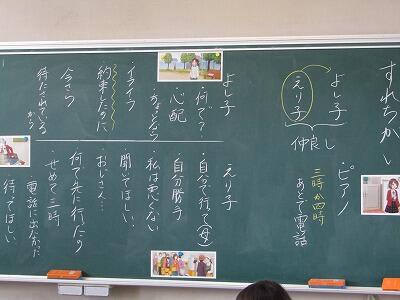 すれちがい
よし子
えり子
仲良し
・ピアノ
三時か四時
あとで電話
よし子
・何で？
・心配
・イライラ
約束したのに
・今さら
・待たされている
から
えり子
・自分で行って(母)
・自分勝手
・私は悪くない
・聞いてほしい
・おじさん…
・何で先に行ったの
・せめて三時
・電話に出なかった
待ってほしい